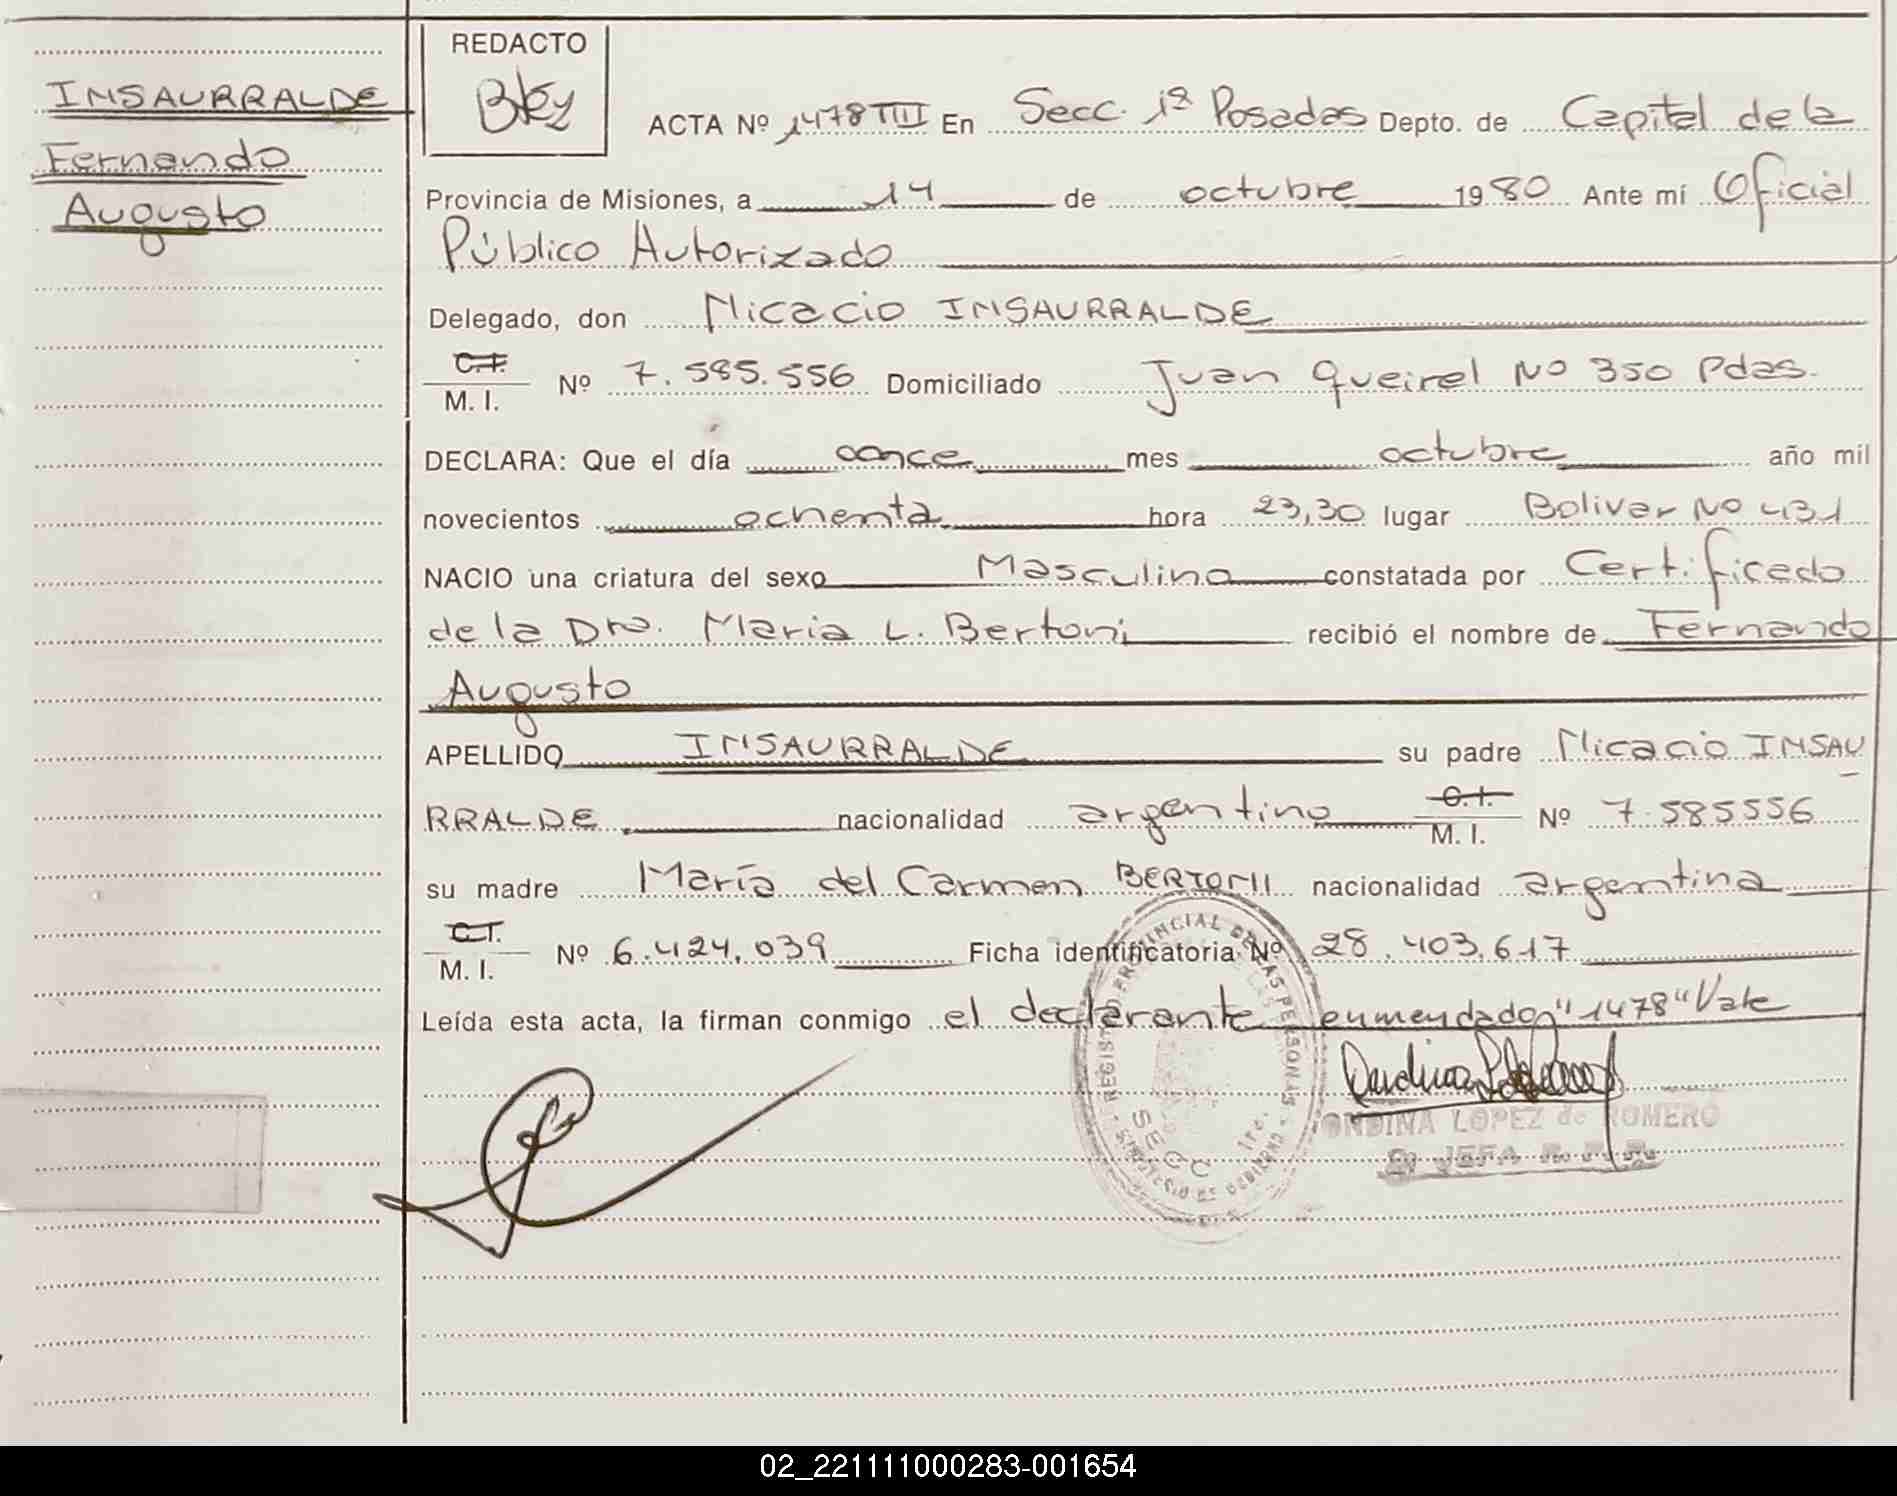 INSAURRALDE
Fernando
Augusto
REDACTO
ACTA Nº 1478 TIII En Secc. 1ª Posadas Depto. de Capital de la
Provincia de Misiones, a 14 de octubre 1980 Ante mí Oficial
Público Autorizado
Delegado, don Nicacio INSAURRALDE
C.I.
M. I. Nº 7.585.556 Domiciliado Juan Queirel Nº 350 Pdas.
DECLARA: Que el día once mes octubre año mil
novecientos ochenta hora 23,30 lugar Bolivar Nº 431
NACIO una criatura del sexo Masculino constatada por Certificado
de la Dra. Maria L. Bertoni recibió el nombre de Fernando
Augusto
APELLIDO INSAURRALDE su padre Nicacio INSAU
RRALDE nacionalidad argentino C.I. M. I. Nº 7.585556
su madre María del Carmen BERTONI nacionalidad argentina
C.I.
M. I. Nº 6.424.039 Ficha identificatoria Nº 28.403.617
Leída esta acta, la firman conmigo el declarante enmendado "1478" Vale
REGISTRO PROVINCIAL DE LAS PERSONAS
SECC 1ra.
MINISTERIO DE GOBIERNO
ONDINA LOPEZ de ROMERO
JEFA R.P.P.
02_221111000283-001654